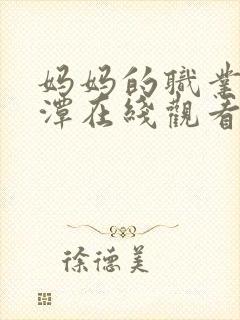 妈妈的職業
潭在綫觀看
徐德美